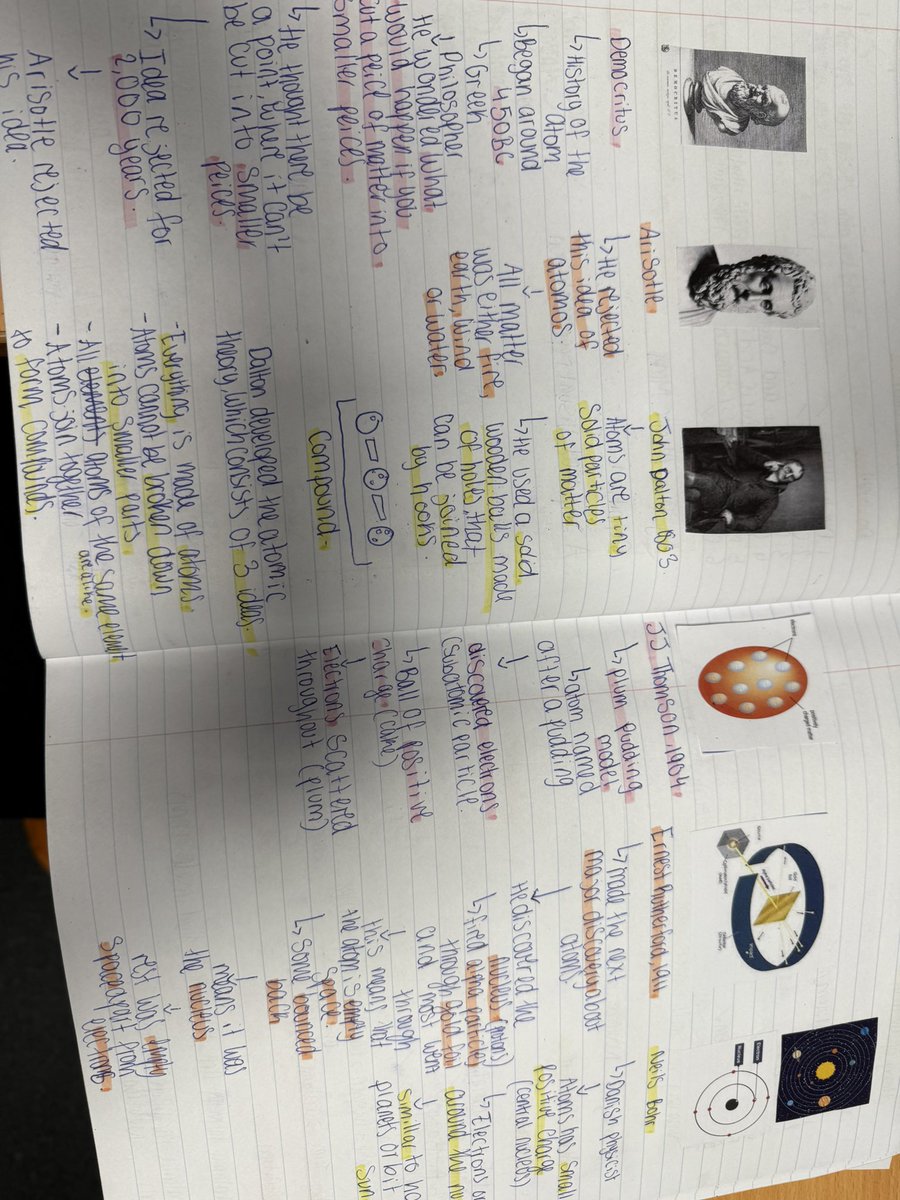 DEMOCRITUS
Democritus.
↳History of the
atom
↳Began around
450BC
↳Greek
Philosopher
He wondered what
would happen if you
cut a peice of matter into
smaller peices.
↳He thought there be
a point where it can't
be cut into smaller
peices.
↳ Idea rejected for
2,000 years.
↓
Arisotle rejected
his idea.
Arisotle.
↳He rejected
this idea of
atomos
↓
All matter
was either fire,
earth, wind
or water.
John Dalton
Atoms are tiny
solid particles
of matter
↳He used a solid
wooden balls made
of holes, that
can be joined
by hooks.
Compound.
Dalton developed the atomic
theory, which consists of 3 ideas.
-Everything is made of atoms.
-Atoms cannot be broken down
into smaller parts
- All atoms of the same elemnt
are alike.
- Atoms join together
to form compounds.
JJ. Thomson 1904.
↳plum pudding
model
↳atom named
after a pudding
↓
discovered electrons.
(subatomic particle.
↳Ball of positive
charge (cake)
↓
Electrons scattered
throughout (plum)
Ernest Rutherford, 1911
↳made the next
major discovery about
atoms
↓
He discovered the
nucleus (protons)
↳fired alpha particles
through gold foil
and most went
through
↓
this means that
the atom is empty
space
↳ Some bounced
back
↓
means it was
the nucleus
↓
rest was empty
space apart from
electrons.
Neils Bohr.
↳Danish physicist
↓
Atoms has small
positive charge
(central nucleus)
↳Electrons
around the
↓
similar to
planets orbit
sun
Electron
Nucleus